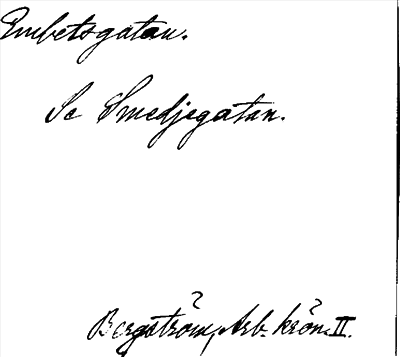 Embetsgatan.
Se Smedjegatan.
Bergström, Arb. krön. II.